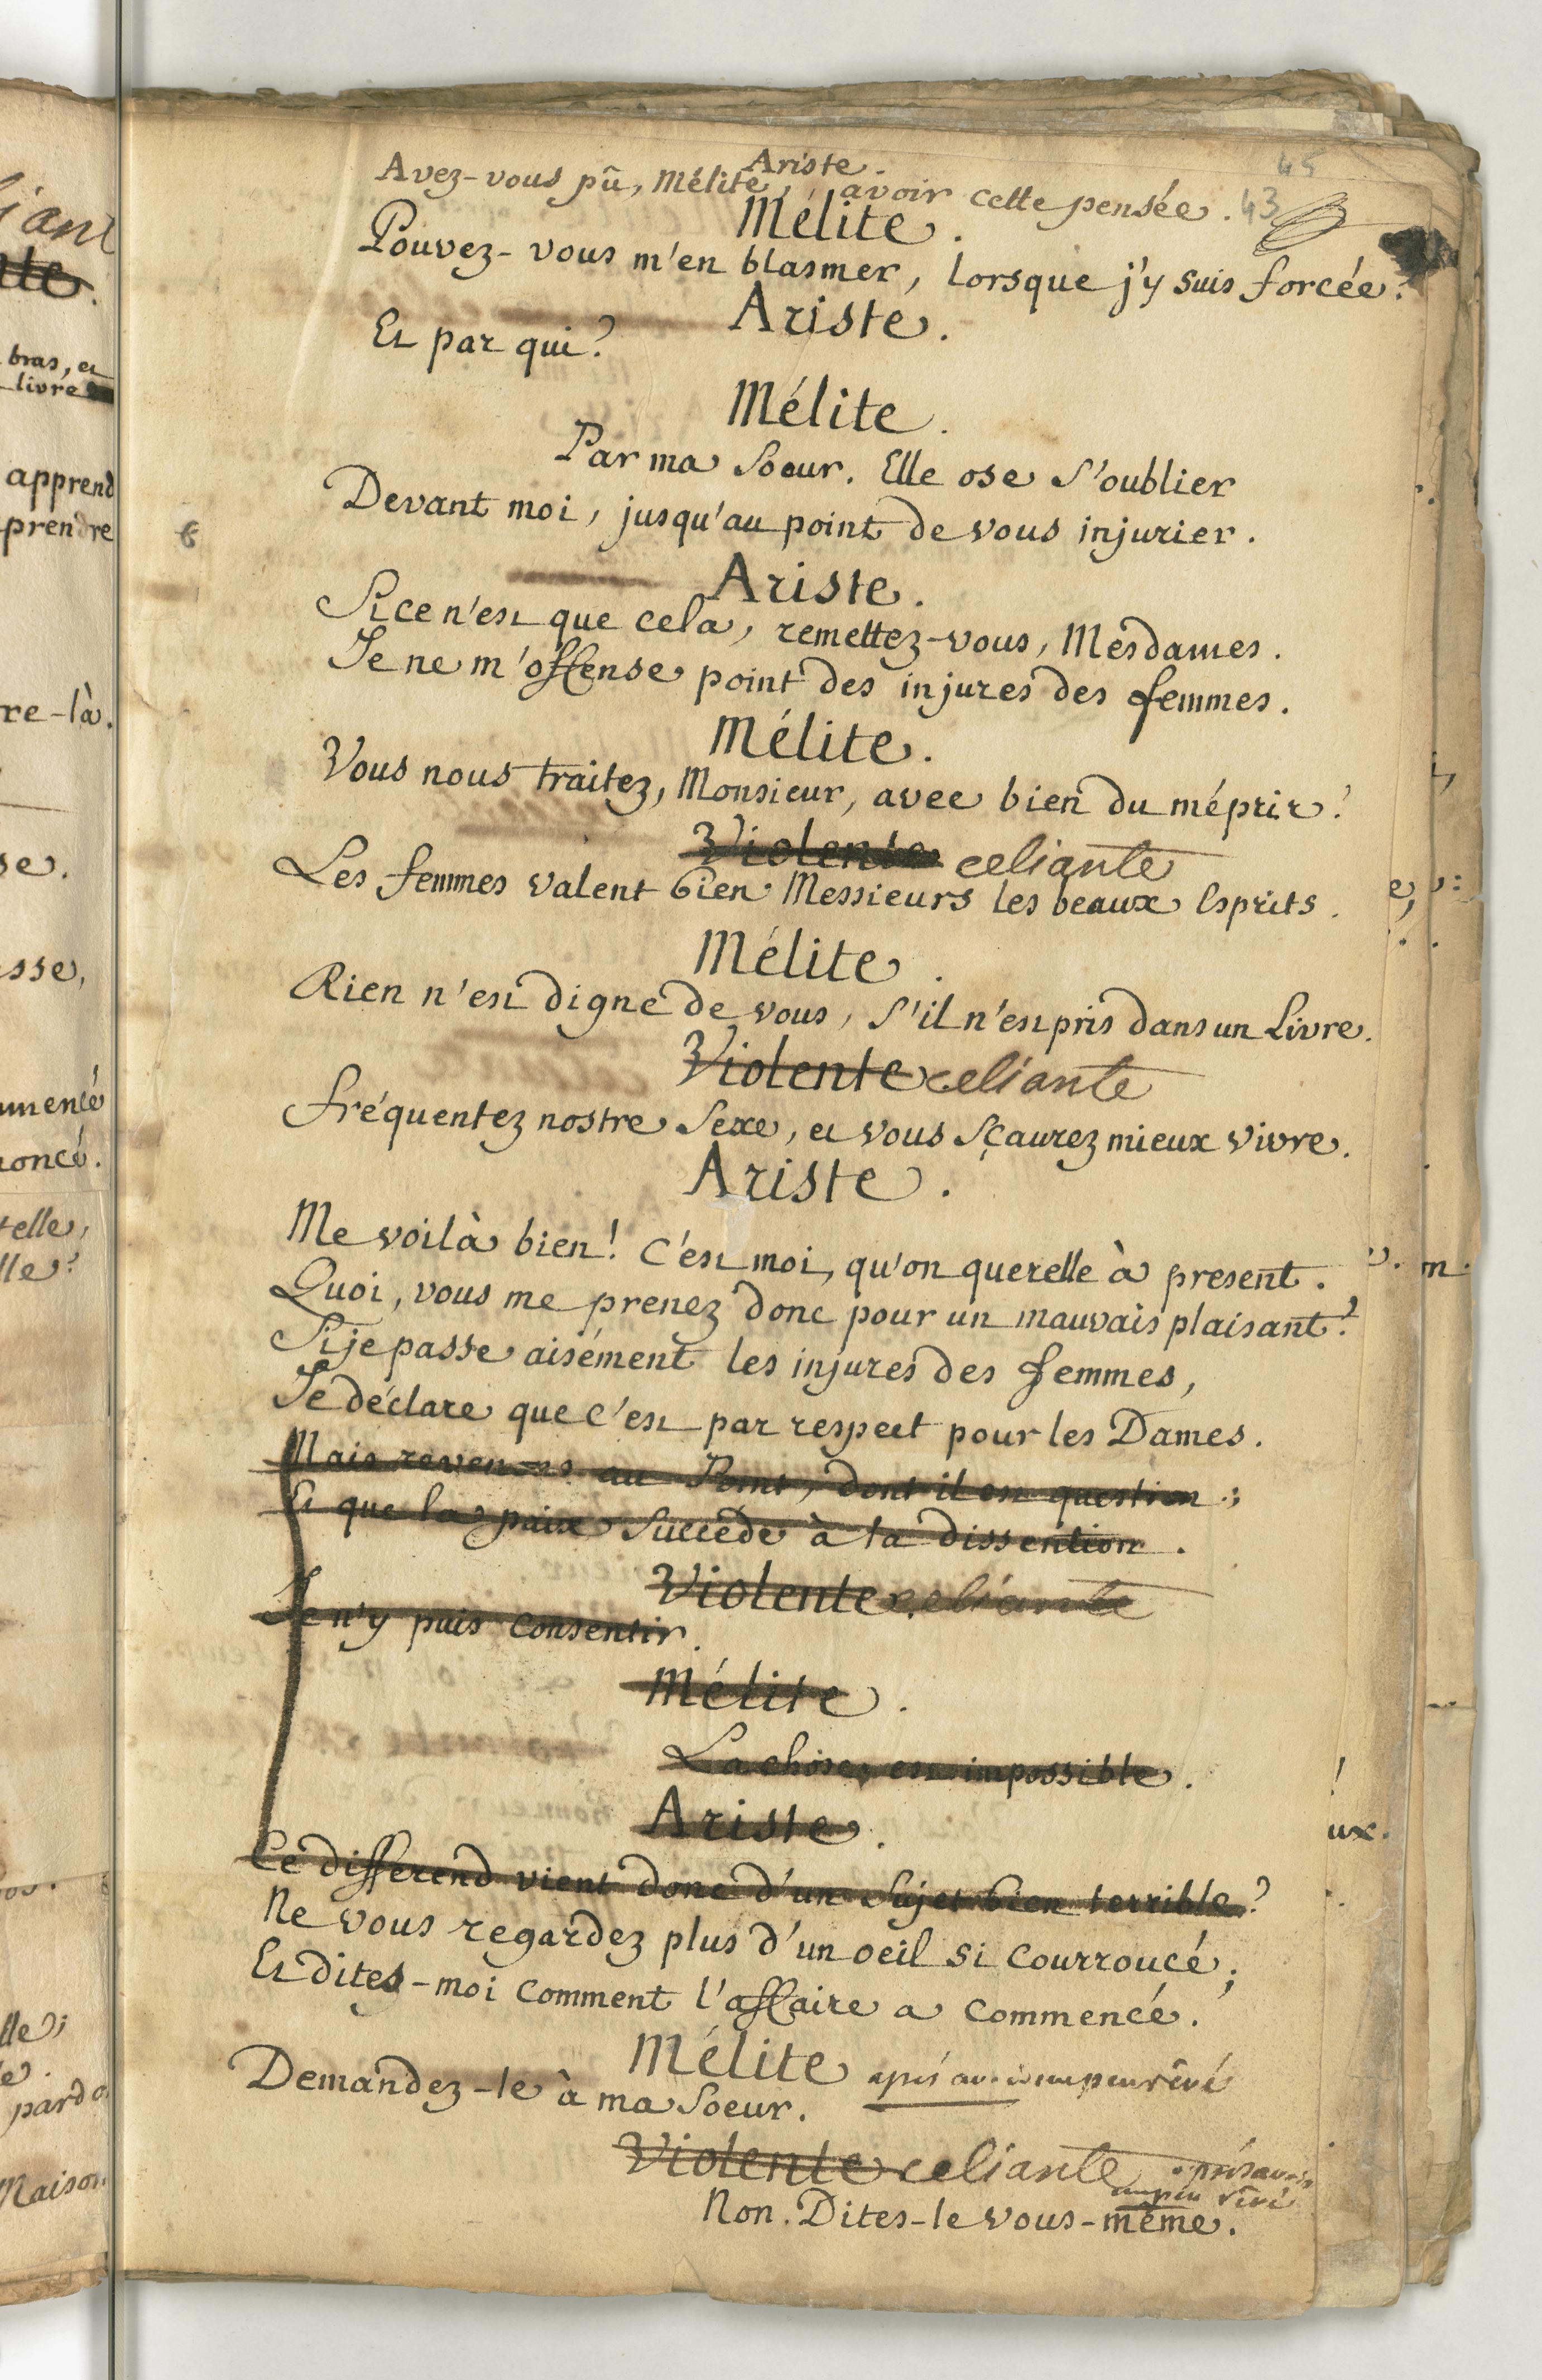 45
Ariste.
Avez-vous pû, Mélite, avoir cette pensée. 43
Mélite.
Pouvez-vous m'en blasmer, lorsque j'y suis forcée?
Ariste.
Et par qui?
Mélite.
Par ma Soeur. Elle ose s'oublier
Devant moi, jusqu'au point de vous injurier.
Ariste.
Si ce n'est que cela, remettez-vous, Mesdames.
Je ne m'offense point des injures des femmes.
Mélite.
Vous nous traitez, Monsieur, avec bien du mépris?
Violente celiante
Les femmes valent bien Messieurs les beaux Esprits.
Mélite.
Rien n'est digne de vous, s'il n'est pris dans un Livre.
Violente celiante
Fréquentez nostre Sexe, et vous sçaurez mieux vivre.
Ariste.
Me voilà bien! C'est moi, qu'on querelle à present.
Quoi, vous me prenez donc pour un mauvais plaisant?
Si je passe aisément les injures des femmes,
Je déclare que c'est par respect pour les Dames.
Mais revenons au Point, dont il est question;
Et que la paix succede à la dissention.
Violente celiante
Je n'y puis consentir.
Mélite.
La chose est impossible.
Ariste.
Ce differend vient donc d'un Sujet bien terrible?
Ne vous regardez plus d'un oeil si courroucé;
Et dites-moi comment l'affaire a commencé.
Mélite après avoir un peu rêvé
Demandez-le à ma Soeur.
Violente celiante après avoir
un peu rêvé
Non. Dites-le vous-même.